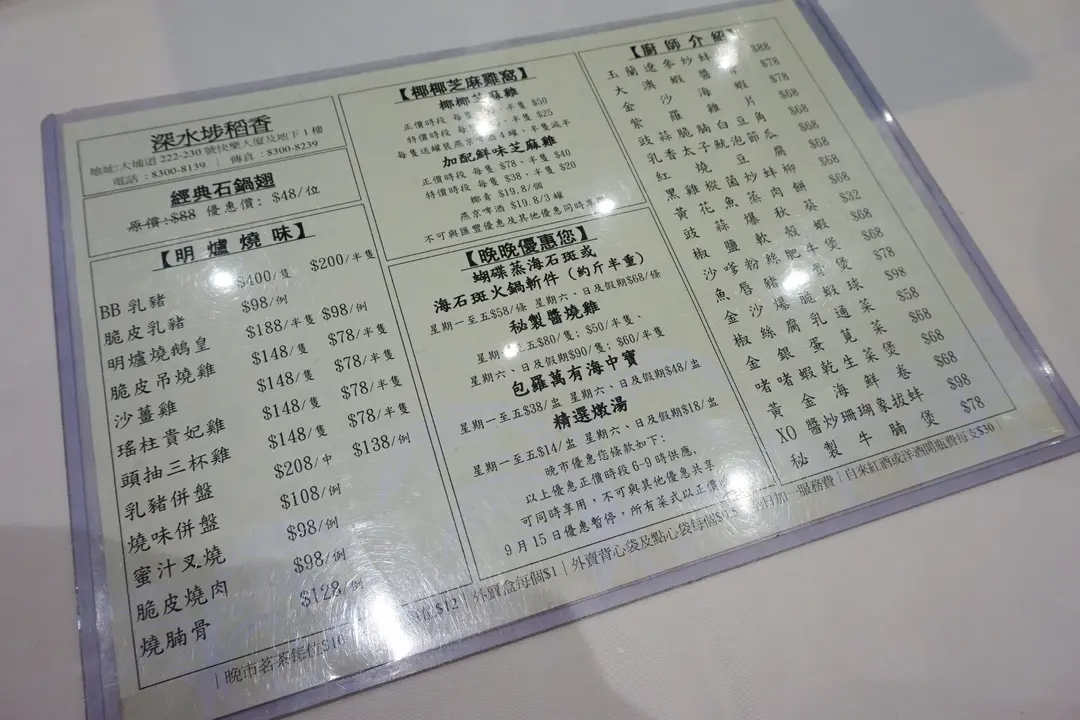 深水埗稻香
地址:大埔道 222-230 號快樂大廈及地下1樓
電話：8300-8139 ｜ 傳真：8300-8239
經典石鍋翅
原價:$88 優惠價: $48/位
【明爐燒味】
BB 乳豬 $400/隻 $200/半隻
脆皮乳豬 $98/例
明爐燒鵝皇 $188/半隻 $98/例
脆皮吊燒雞 $148/隻 $78/半隻
沙薑雞 $148/隻 $78/半隻
瑤柱貴妃雞 $148/隻 $78/半隻
頭抽三杯雞 $148/隻 $78/半隻
乳豬併盤 $208/中 $138/例
燒味併盤 $108/例
蜜汁叉燒 $98/例
脆皮燒肉 $98/例
燒腩骨 $128/例
【椰椰芝麻雞窩】
椰椰芝麻雞
正價時段 每隻 半隻 $50
特價時段 每隻 半隻 $25
每隻送罐裝燕京啤酒4罐，半隻減半
加配鮮味芝麻雞
正價時段 每隻 $78、半隻 $40
特價時段 每隻 $38、半隻 $20
椰青 $19.8/個
燕京啤酒 $19.8/3罐
不可與匯豐優惠及其他優惠同時享用
【晚晚優惠您】
蝴蝶蒸海石斑或
海石斑火鍋斬件 (約斤半重)
星期一至五$58/條 星期六、日及假期$68/條
秘製醬燒雞
星期一至五$80/隻; $50/半隻、
星期六、日及假期$90/隻; $60/半隻
包羅萬有海中寶
星期一至五$38/盅 星期六、日及假期$48/盅
精選燉湯
星期一至五$14/盅 星期六、日及假期$18/盅
晚市優惠您條款如下:
以上優惠正價時段 6-9 時供應,
可同時享用，不可與其他優惠共享
9月15日優惠暫停，所有菜式以正價
【廚師介紹】
玉蘭遼參炒蚌 $88
大澳蝦醬 $78
金沙海蝦 $78
紫羅雞片 $68
豉蒜脆腩白豆角 $68
乳香太子魷泡節瓜 $68
紅燒豆腐 $68
黑雞樅菌炒蚌柳 $68
黃花魚蒸肉餅 $68
豉蒜爆秋葵 $32
椒鹽軟殼蝦 $68
沙嗲粉絲肥牛煲 $68
魚唇豬骨煲 $78
金沙爆脆蝦球 $98
椒絲腐乳通菜 $58
金銀蛋莧菜 $68
啫啫蝦乾生菜煲 $68
黃金海鮮卷 $68
XO 醬炒珊瑚象拔蚌 $98
秘製牛腩煲 $78
｜晚市茗茶每位$10 $12｜外賣盒每個$1｜外賣背心袋及點心袋每個$0.5 加一服務費｜自來紅酒或洋酒開瓶費每支$30｜